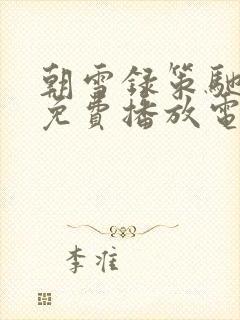 朝雪録策馳
免費播放電
李准